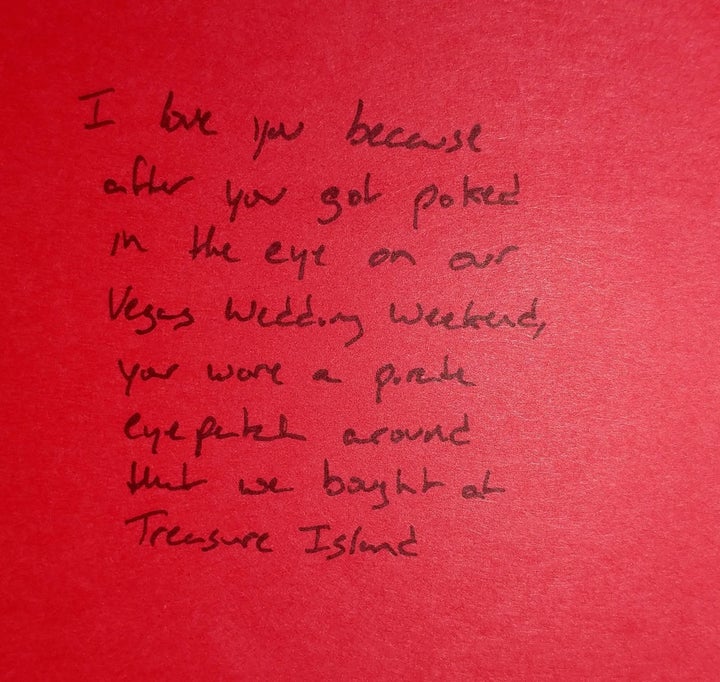 I love you because
after you got poked
in the eye on our
Vegas Wedding Weekend,
you wore a pirate
eyepatch around
that we bought at
Treasure Island